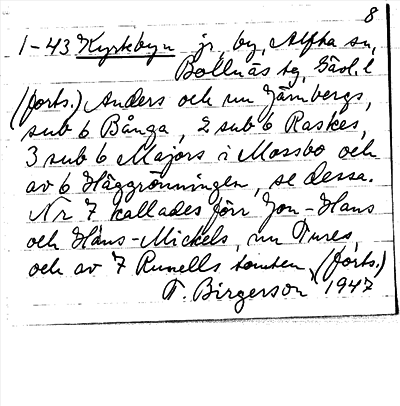 8
1-43 Kyrkbyn jr, by, Alfta sn,
Bollnäs tg, Gävl. l
(forts.) Anders och nu Järnbergs,
sub 6 Bånga, 2 sub 6 Raskes,
3 sub 6 Majors i Mossbo och
av 6 Häggrönningen, se dessa.
Nr 7 kallades förr Jon-Hans
och Hans-Mickels, nu Tures,
och av 7 Runells tomten, (forts.)
F. Birgerson 1947